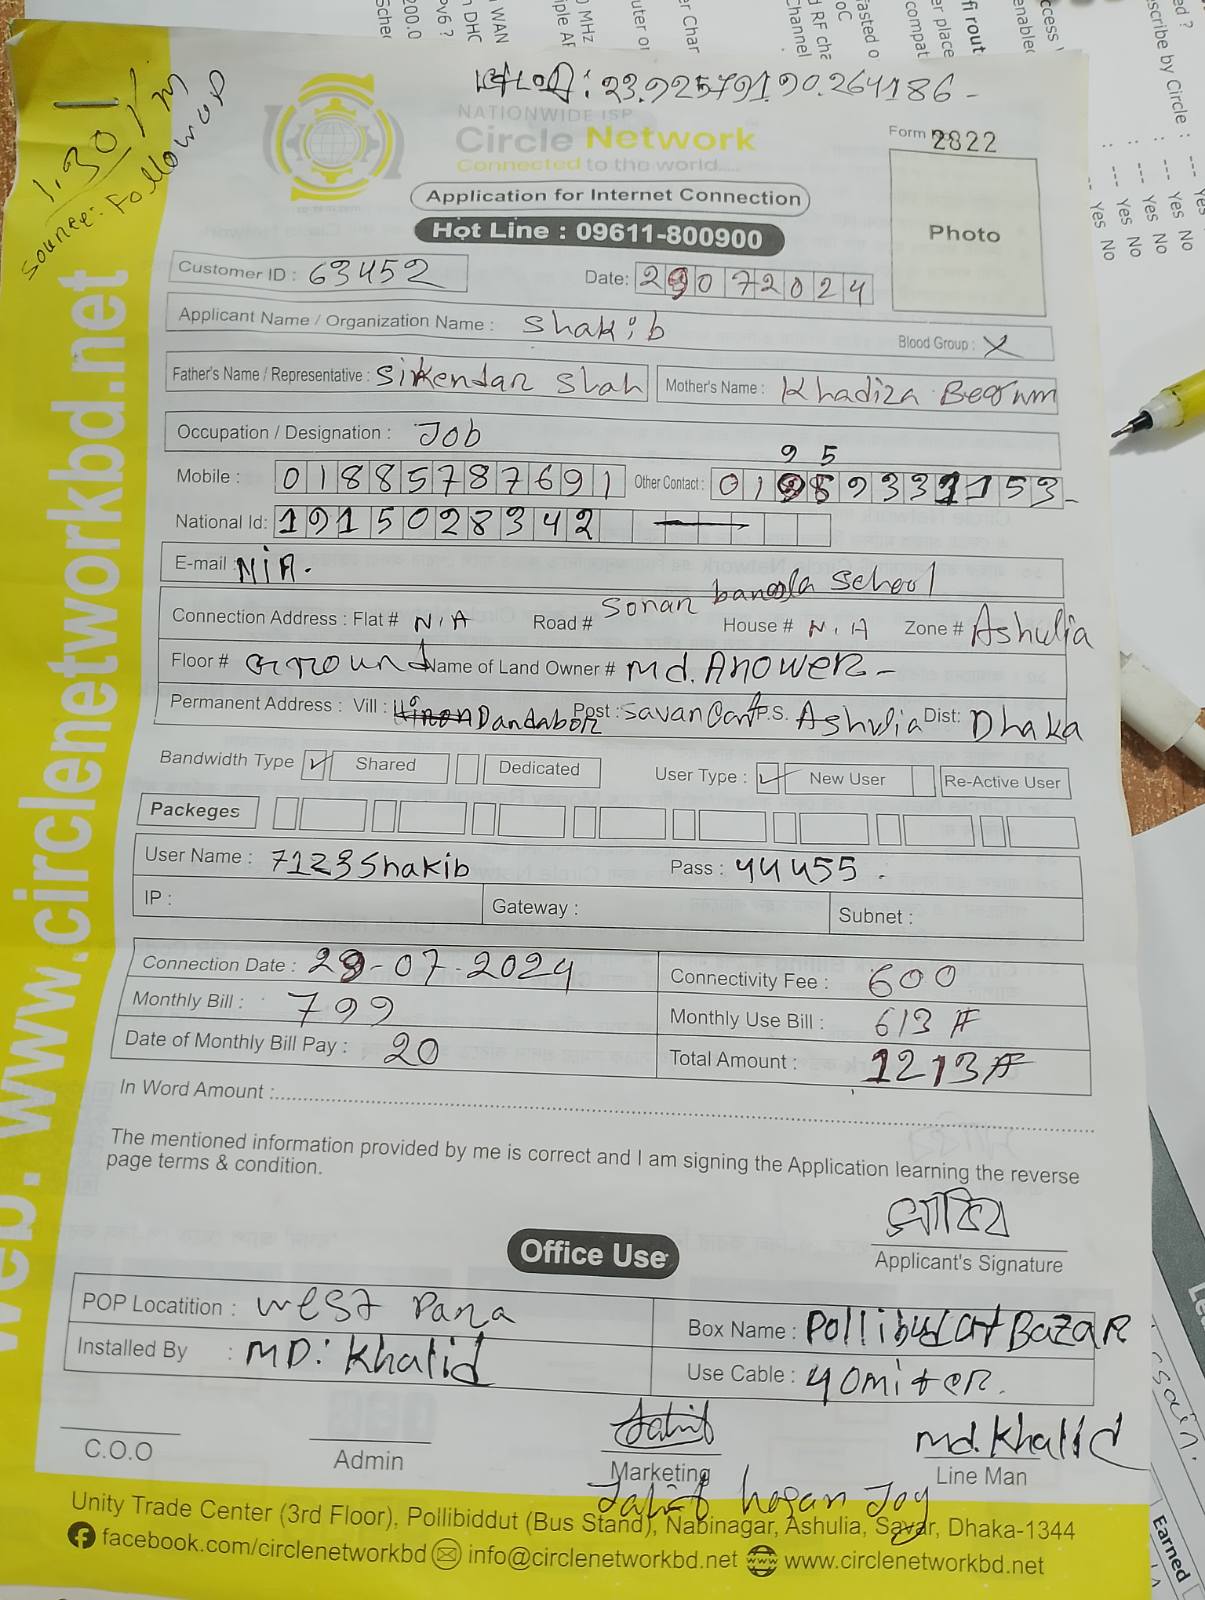 : 23.925791.90.264186 -
1.30 PM
Source: Followup
NATIONWIDE ISP
Circle Network
Connected to the world.....
Form no 2822
Application for Internet Connection
Hot Line : 09611-800900
Photo
Customer ID : 63452
Date: 29072024
Applicant Name / Organization Name : Shakib
Blood Group : X
Father's Name / Representative : Sikendar Shah Mother's Name : Khadiza Begum
Occupation / Designation : Job
9 5
Mobile : 01885787691 Other Contact : 01959331153-
National Id: 1915028342
E-mail : N/A.
Connection Address : Flat # N/A Road # Sonar bangla School House # N/A Zone # Ashulia
Floor # Ground Name of Land Owner # Md. Anower -
Permanent Address : Vill : Dandabor Post : Savar Cant P.S. Ashulia Dist: Dhaka
Bandwidth Type ✓ Shared Dedicated User Type : ✓ New User Re-Active User
Packeges
User Name : 7123Shakib Pass : 44455 .
IP : Gateway : Subnet :
Connection Date : 29-07-2024 Connectivity Fee : 600
Monthly Bill : 799 Monthly Use Bill : 613 #
Date of Monthly Bill Pay : 20 Total Amount : 1213 #
In Word Amount :
The mentioned information provided by me is correct and I am signing the Application learning the reverse
page terms & condition.
সাকিব
Applicant's Signature
Office Use
POP Locatition : West Para Box Name : Pollibidyut Bazar
Installed By : MD. Khalid Use Cable : 40 miter.
C.O.O Admin Marketing Line Man
Md. Khalid
Jahid hasan Joy
Unity Trade Center (3rd Floor), Pollibiddut (Bus Stand), Nabinagar, Ashulia, Savar, Dhaka-1344
facebook.com/circlenetworkbd info@circlenetworkbd.net www.circlenetworkbd.net
Web: www.circlenetworkbd.net
Earned